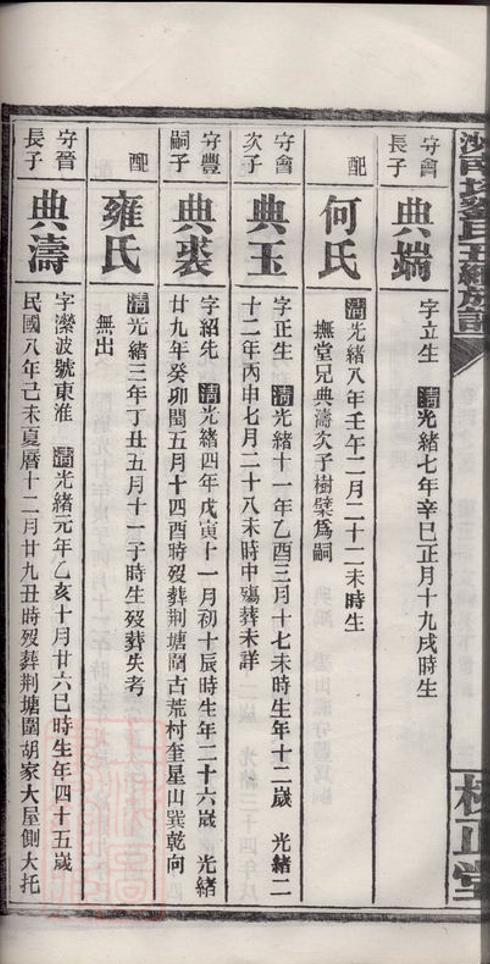 劉氏五續族譜
校正堂
守會
長子
典端
字立生 清光緒七年辛巳正月十九戌時生
配
何氏
清光緒八年壬午二月二十二未時生
撫堂兄典濤次子樹檗爲嗣
守會
次子
典玉
字正生 清光緒十一年乙酉三月十七未時生年十二歲 光緒二
十二年丙申七月二十八未時中殤葬未詳
守豐
嗣子
典裘
字紹先 清光緒四年戊寅十一月初十辰時生年二十六歲 光緒
廿九年癸卯閏五月十四酉時歿葬荆塘圍古荒村奎星山巽乾向
配
雍氏
清光緒三年丁丑五月十一子時生歿葬失考
無出
守晉
長子
典濤
字灤波號東淮 清光緒元年乙亥十月廿六巳時生年四十五歲
民國八年己未夏曆十二月廿九丑時歿葬荆塘圍胡家大屋側大托